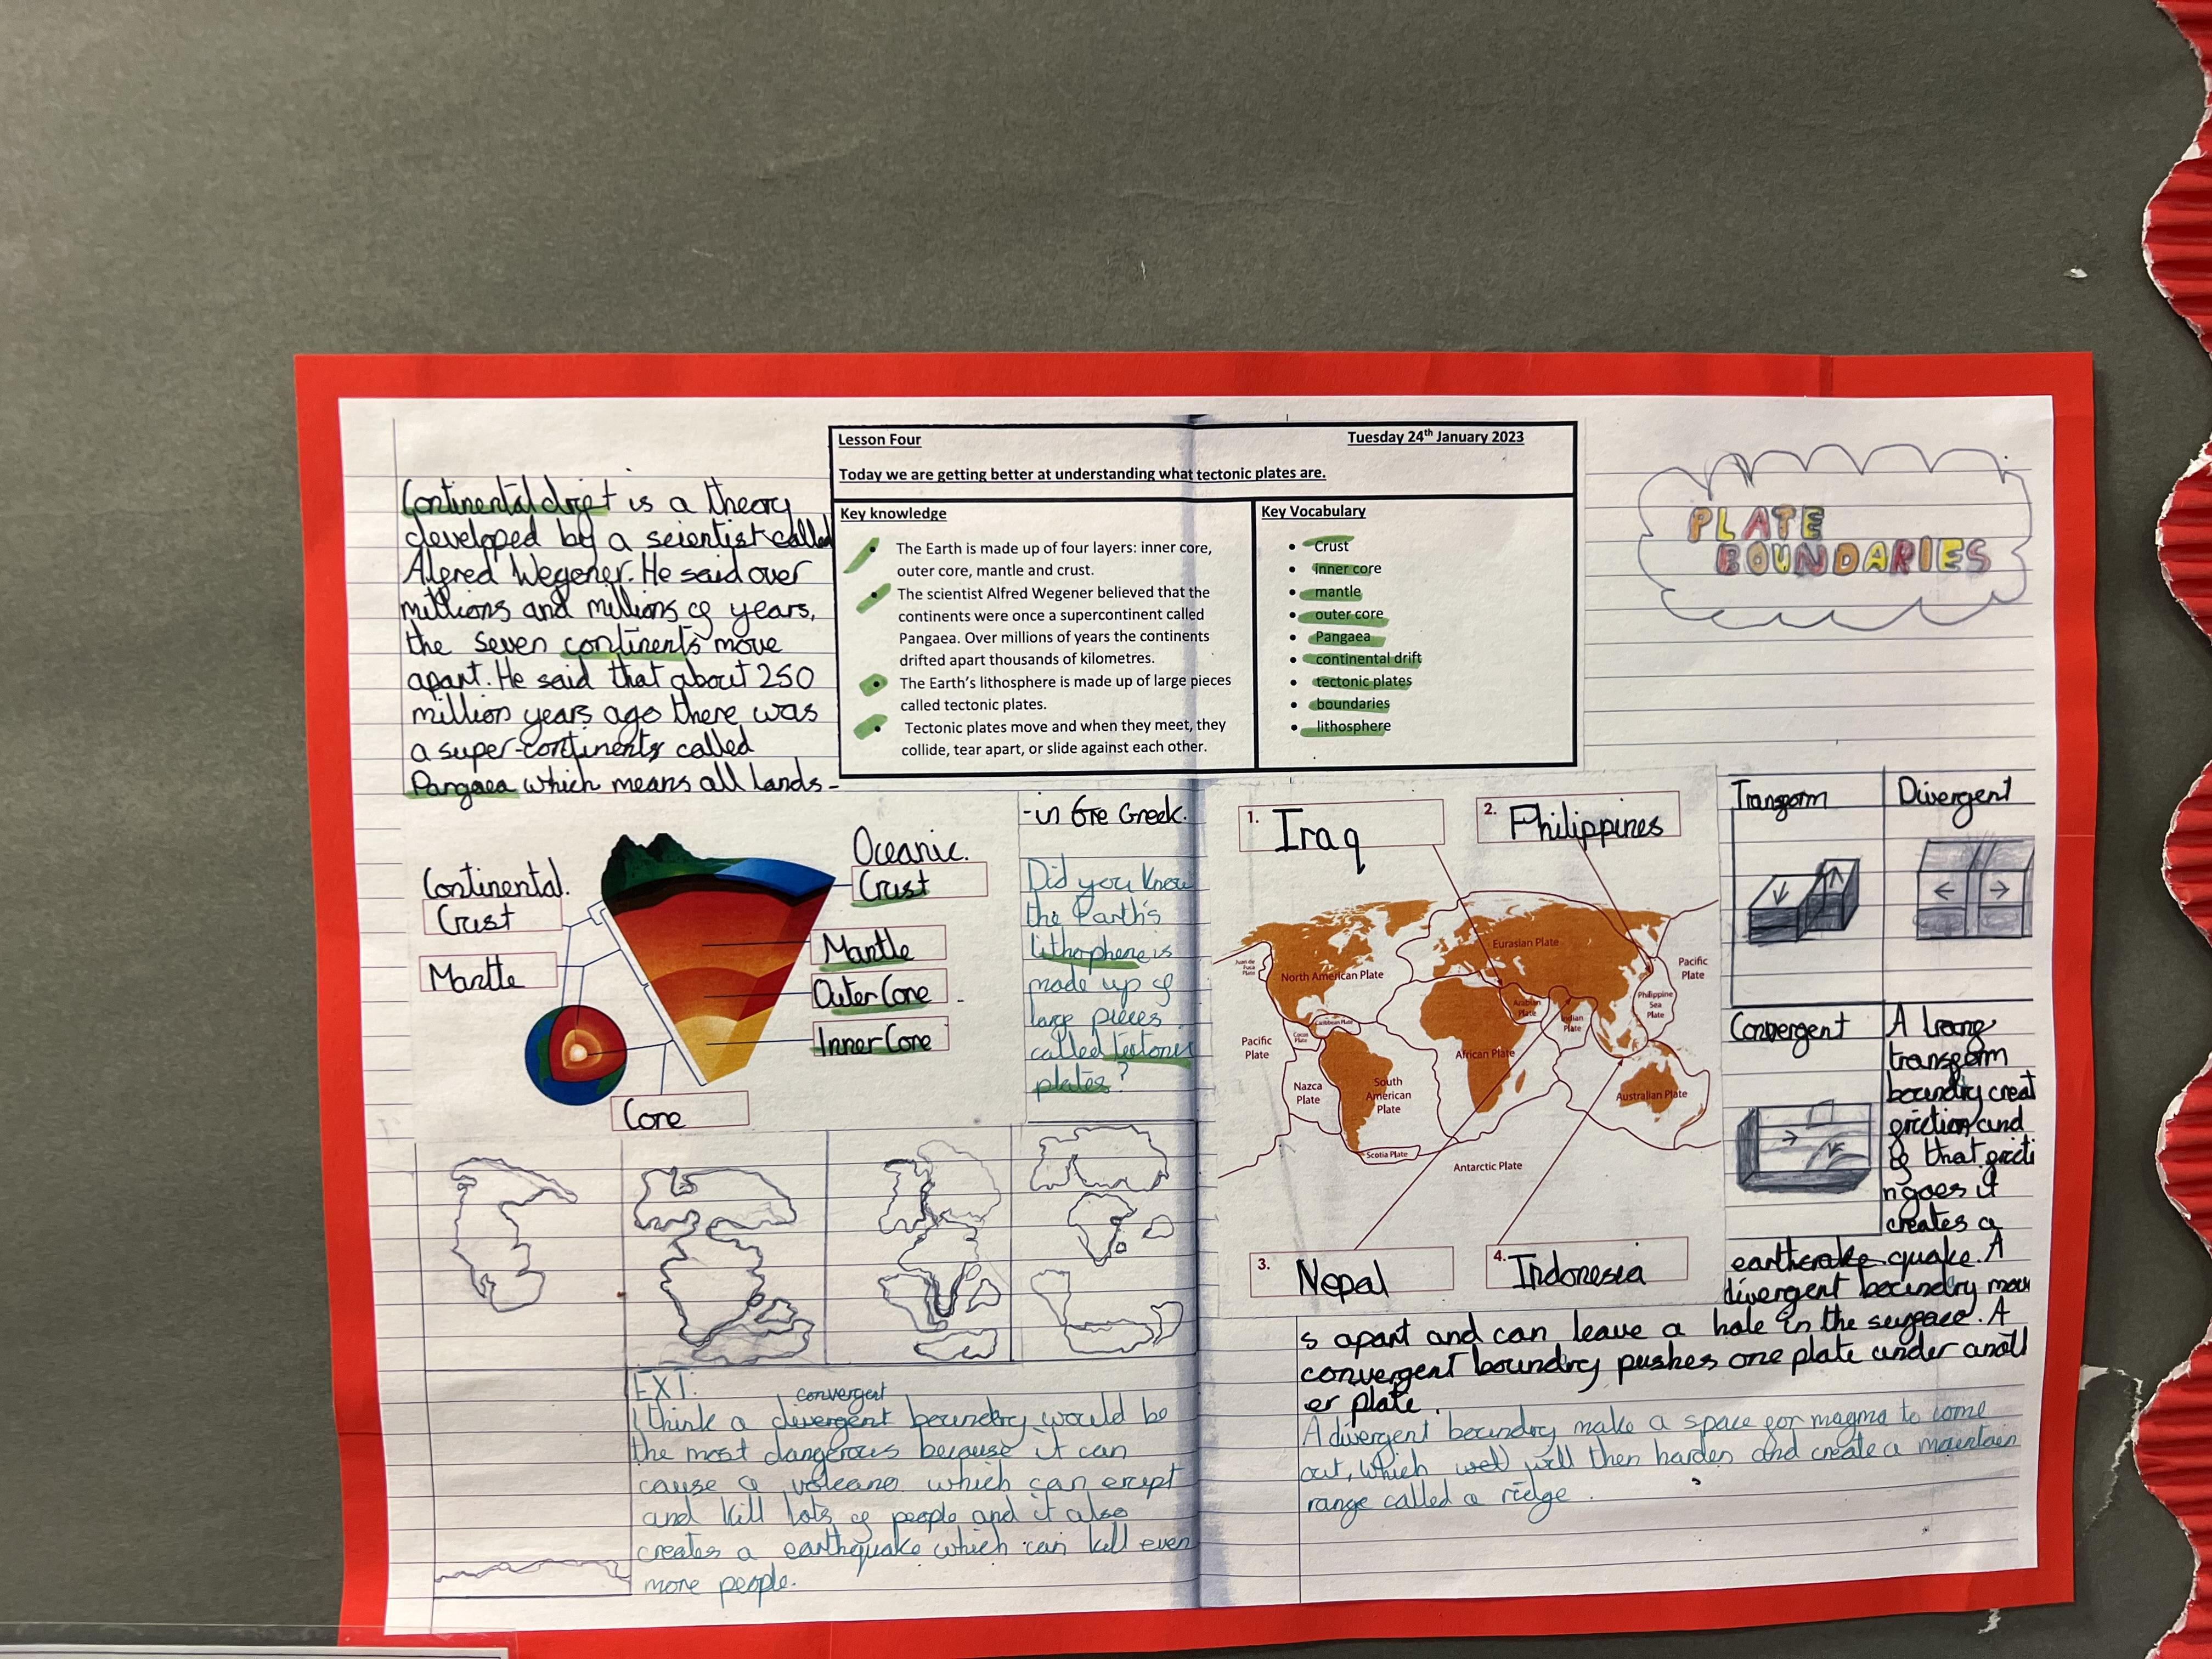 Lesson Four
Tuesday 24th January 2023
Today we are getting better at understanding what tectonic plates are.
Key knowledge
The Earth is made up of four layers: inner core,
outer core, mantle and crust.
The scientist Alfred Wegener believed that the
continents were once a supercontinent called
Pangaea. Over millions of years the continents
drifted apart thousands of kilometres.
The Earth's lithosphere is made up of large pieces
called tectonic plates.
Tectonic plates move and when they meet, they
collide, tear apart, or slide against each other.
Key Vocabulary
Crust
inner core
mantle
outer core
Pangaea
continental drift
tectonic plates
boundaries
lithosphere
PLATE
BOUNDARIES
Continental drift is a theory
developed by a scientist called
Alfred Wegener. He said over
millions and millions of years,
the seven continents move
apart. He said that about 250
million years ago there was
a super-continents called
Pangaea which means all lands-
-in Gre Greek.
Did you know
the Earth's
lithophene is
made up of
large pieces
called tectonic
plates?
Continental.
Crust
Mantle
Oceanic.
Crust
Mantle
Outer Core
Inner Core
Core
1. Iraq
2. Philippines
3. Nepal
4. Indonesia
Juan de
Fuca
Plate
North American Plate
Eurasian Plate
Pacific
Plate
Philippine
Sea
Plate
Arabian
Plate
Indian
Plate
Caribbean Plate
Cocos
Plate
Pacific
Plate
African Plate
Nazca
Plate
South
American
Plate
Australian Plate
Scotia Plate
Antarctic Plate
Transform
Divergent
Convergent
A
transform
boundry creat
friction and
if that fricti
n goes it
creates a
quake. A
divergent boundry mov
s apart and can leave a hole in the surface. A
convergent boundry pushes one plate under anoth
er plate.
A divergent boundry make a space for magma to come
out, which will then harden and create a mountain
range called a ridge.
EXT:
convergent
I think a divergent boundry would be
the most dangerous because it can
cause a volcano which can erupt
and kill lots of people and it also
creates a earthquake which can kill even
more people.